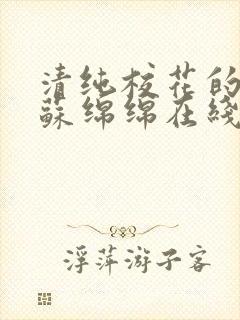 清纯校花的
蘇绵绵在綫
浮萍游子客